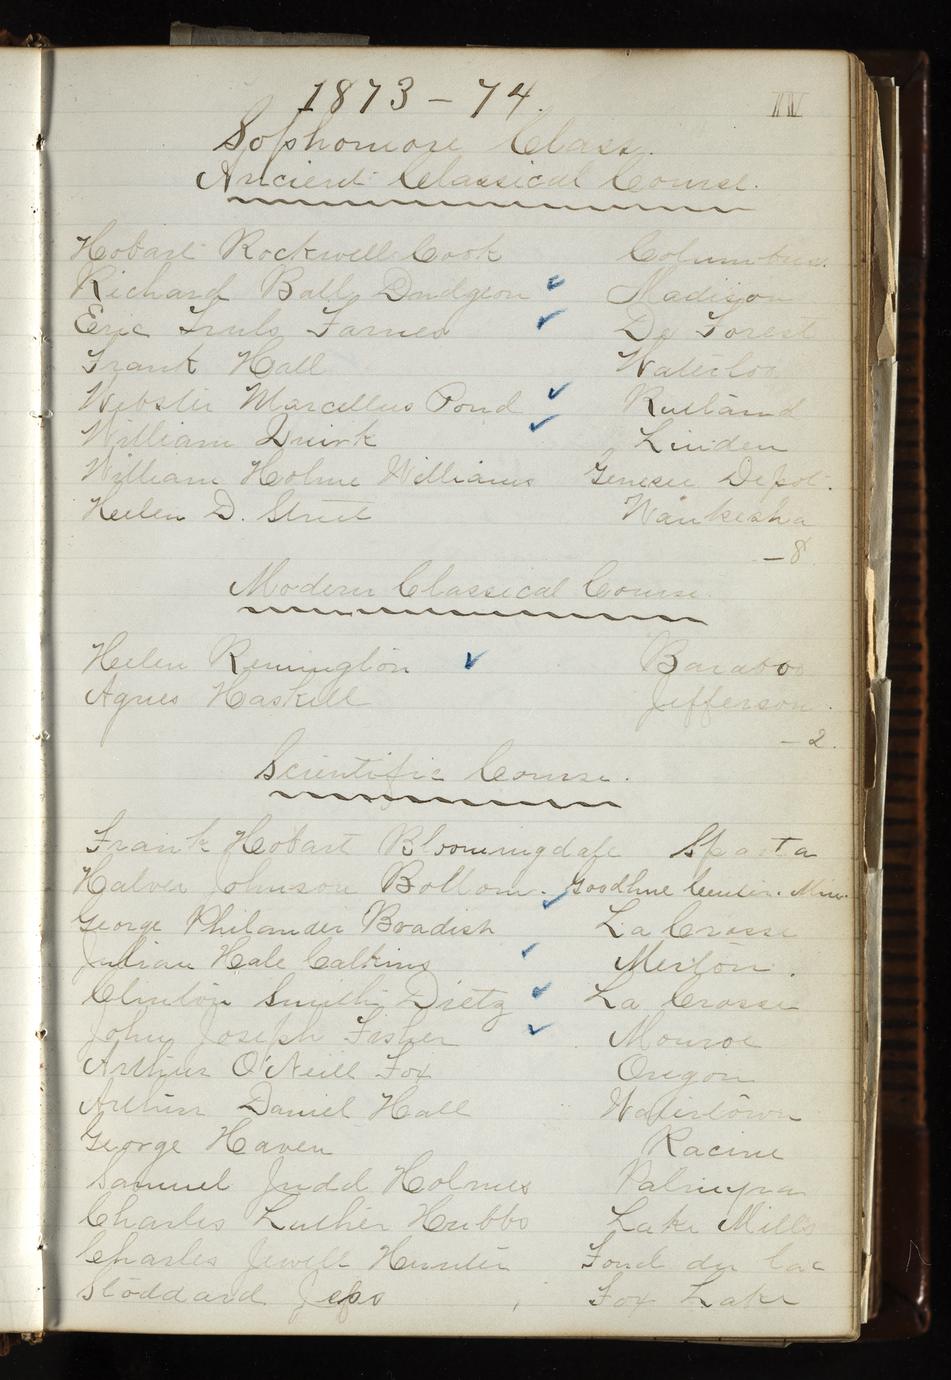 1873-74.
IV
Sophomore Class.
Ancient Classical Course.
Hobart Rockwell Cook Columbus.
Richard Ball Dudgeon ✓ Madison
Eric Truls Farnes ✓ De Forest
Frank Hall Waterloo
Webster Marcellus Pond ✓ Rutland
William Quirk ✓ Linden
William Holme Williams Genesee Depot.
Helen D. Street Waukesha
-8
Modern Classical Course.
Helen Remington ✓ Baraboo
Agnes Haskell Jefferson.
-2.
Scientific Course.
Frank Hobart Bloomingdale Sparta
Halver Johnson Bollom. ✓ Goodhue Center. Min.
George Philander Bradish La Crosse
Julian Hale Calkins ✓ Merton.
Clinton Smith Dietz ✓ La Crosse
John Joseph Fisher ✓ Monroe
Arthur O'Neill Fox Oregon
Arthur Daniel Hall Watertown
George Haven Racine
Samuel Judd Holmes Palmyra
Charles Luther Hubbs Lake Mills
Charles Jewell Hunter Fond du Lac
Stoddard Jess Fox Lake